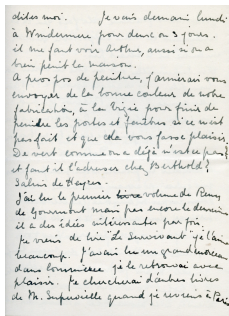 dites moi. Je vais demain lundi
à Windermere pour deux ou 3 jours.
il me faut voir Arthur, aussi si on a
bien peint la maison.
A propos de peinture, j'aimerais vous
envoyer de la bonne couleur de notre
fabrication, à la Vigie pour finir de
peindre les portes et fenêtres si ce n'est
pas fait et que cela vous fasse plaisir.
De vert comme on a déjà n'est ce pas?
et faut il l'adresser chez Berthold?
Salins de Hyères.
J'ai lu le premier livre volume de Remy
de Gourmont mais pas encore le dernier
il a des idées intéressantes par fois.
Je viens de lire "Le Survivant" je l'aime
beaucoup. J'avais lu un grand morceau
dans Commerce je le retrouvai avec
plaisir. Je chercherai d'autres livres
de M. Supervielle quand je reviens à Paris